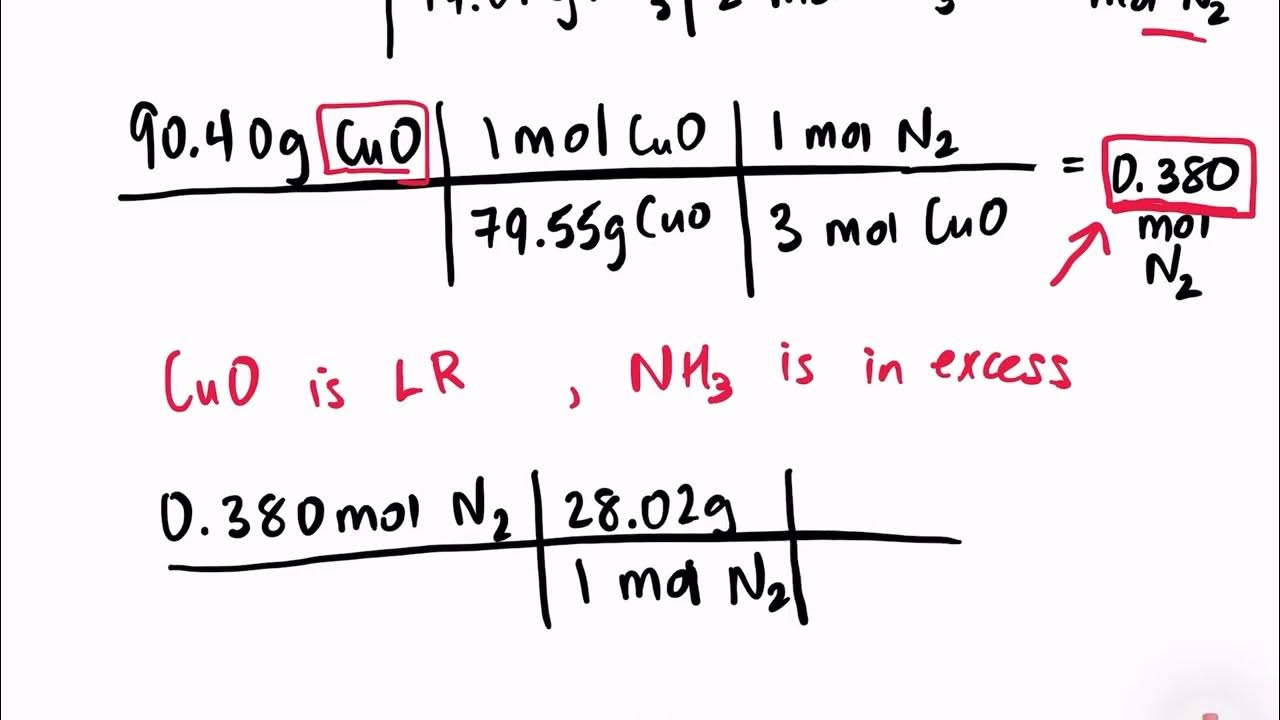 2
N2
90.40g CuO | 1 mol CuO | 1 mol N2
79.55g CuO | 3 mol CuO
= 0.380
mol
N2
CuO is LR , NH3 is in excess
0.380 mol N2 | 28.02g
1 mol N2